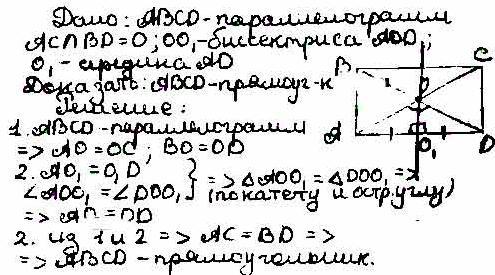 Дано: ABCD-параллелограмм
AC∩BD=O; OO₁-биссектриса AOD,;
O₁- средина AD
Доказать: ABCD-прямоуг-к
Решение:
1. ABCD-параллелограмм
=> AO=OC; BO=OD
2. AO₁=O₁D
∠AOO₁=∠DOO₁ } => △AOO₁=△DOO₁ =>
(по катету и остр. углу)
=> AO=OD
2. из 1 и 2 => AC=BD =>
=> ABCD-прямоугольник.
B C
O
A O₁ D